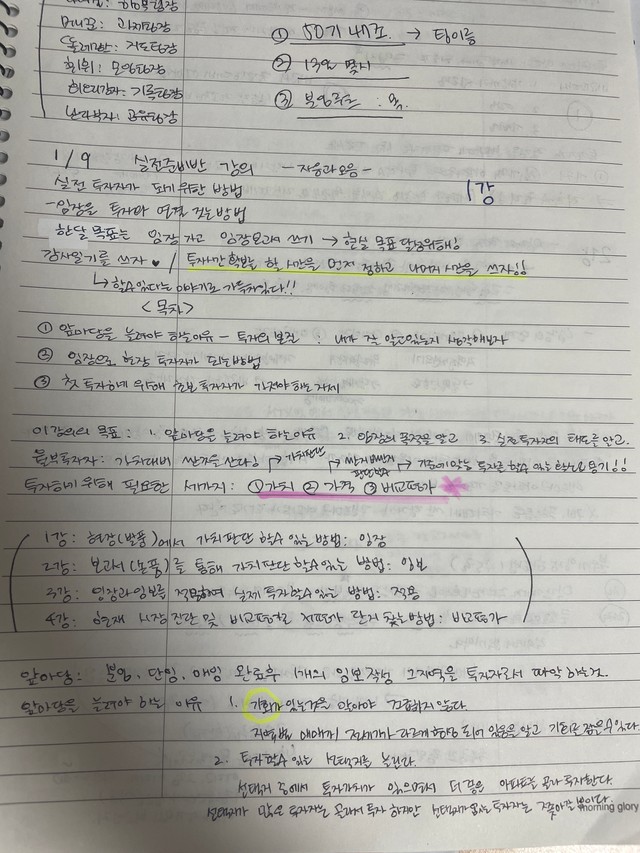 매니저 : 과제팀장
똘레반 : 지도팀장
회휘 : 모임팀장
: 기록팀장
: 공유팀장
① 50기 내조 → 타이틀
② 13일 몇시
③ 분임루트 : 목.
1/9 실전준비반 강의 -자음과모음-
1강
실전 투자자가 되기 위한 방법
-임장을 투자와 연결 짓는방법
한달 목표는 임장 가고 임장보고서 쓰기 → 현실 목표 달성위해!
감사일기를 쓰자 ♥ / 투자시간 확보는 할 시간을 먼저 정하고 나머지 시간을 쓰자!!
↳ 할수있다는 이야기로 가득차있다!!
<목차>
① 앞마당을 늘려야 하는이유 - 투자의 본질 : 내가 잘 알고있는지 생각해보자
② 임장으로 현장 투자자가 되는방법
③ 첫 투자하기 위해 초보 투자자가 가져야 하는 자세
이강의의 목표 : 1. 앞마당을 늘려야 하는이유 2. 임장의 목적을 알고 3. 실전 투자자의 태도를 안고.
월부투자자 : 가치대비 싼것을 산다! 가치판단 싼지비싼지 판단필수 기준에 맞는 투자로 할수 있는 확신으로 용기!!
투자하기 위해 필요한 세가지 : ① 가치 ② 가격 ③ 비교평가
1강 : 현장(발품)에서 가치판단 할수 있는 방법 : 임장
2강 : 보고서(손품)를 통해 가치판단 할수 있는 방법 : 임보
3강 : 임장과 임보를 접목하여 실제 투자할수 있는 방법 : 적용
4강 : 현재 시장 진단 및 비교평가로 저평가 단지 찾는방법 : 비교평가
앞마당 : 분임, 단임, 매임 완료후 1개의 임보작성 그지역을 투자자로서 파악 하는것.
앞마당을 늘려야 하는 이유 1. 기회가 있는것을 알아야 조급하지 않는다.
지역별 매매가 전세가가 다르게 형성 되어 있음을 알고 기회로 잡을수 있다.
2. 투자할수 있는 선택지를 늘린다.
선택지 중에서 투자가치가 있으면서 더 좋은 아파트를 골라 투자한다.
선택지가 많은 투자자는 골라서 투자 하지만 선택지가 없는 투자자는 쫓아갈 뿐이다.
morning glory